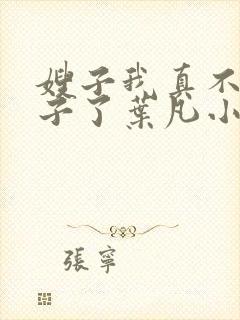 嫂子我真不
子了葉凡小
張寧